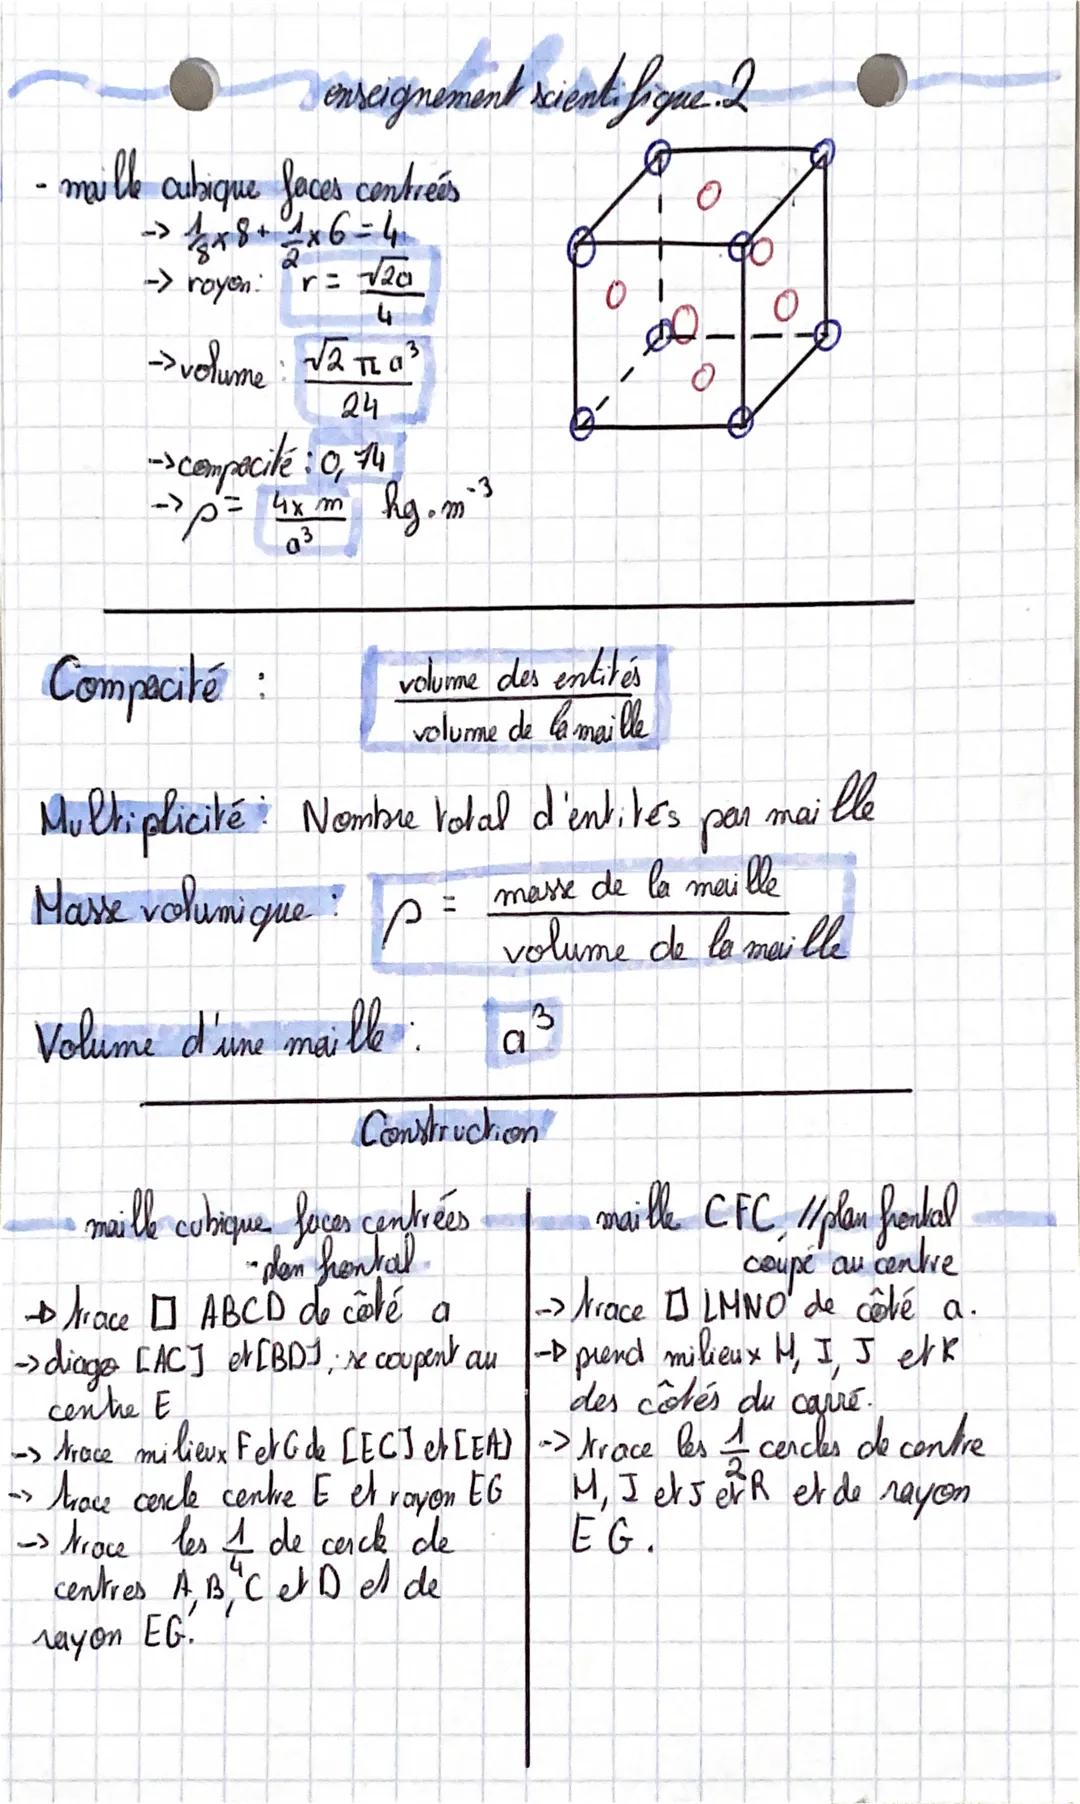 enseignement scientifique.2
- maille cubique faces centrées
-> 1/8 x 8 + 1/2 x 6 = 4
-> rayon: r = √2a/4
-> volume : √2 π a³/24
-> compacité : 0,74
-> ρ = 4x m/a³ kg.m⁻³
Compacité : volume des entités/volume de la maille
Multiplicité : Nombre total d'entités par maille
Masse volumique : ρ = masse de la maille/volume de la maille
Volume d'une maille : a³
Construction
maille cubique faces centrées
- plan frontal
-> trace □ ABCD de côté a
-> diago [AC] et [BD], se coupent au
centre E
-> trace milieux F et G de [EC] et [EA]
-> trace cercle centre E et rayon EG
-> trace les 1/4 de cercle de
centres A, B, C et D et de
rayon EG.
maille CFC // plan frontal
coupé au centre
-> trace □ LMNO de côté a.
-> prend milieux H, I, J et K
des côtés du carré.
-> trace les 1/2 cercles de centre
M, I et J et R et de rayon
EG.